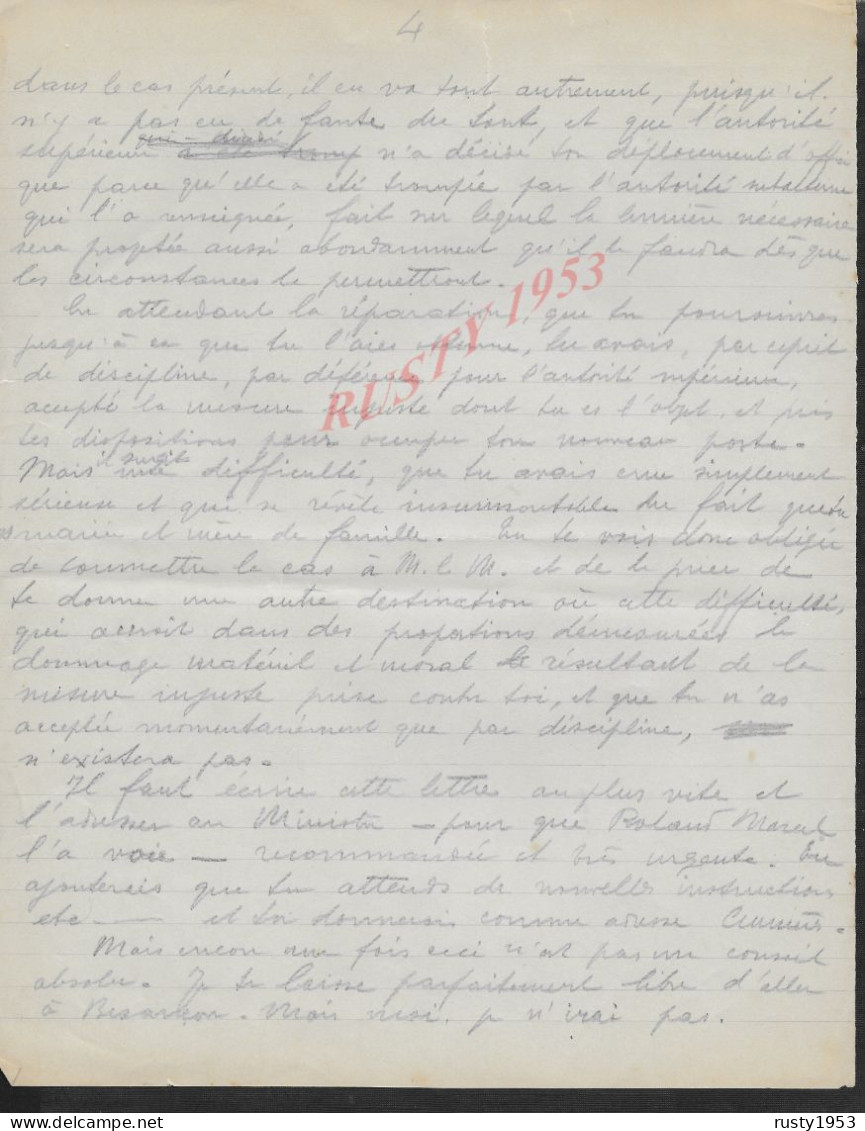 4
dans le cas présent, il en va tout autrement, puisqu'il
n'y a pas eu de faute du tout, et que l'autorité
qui - 
supérieure n'a décidé ton déplacement d'office
que parce qu'elle a été trompée par l'autorité subalterne
qui l'a renseignée, fait sur lequel la lumière nécessaire
sera projetée aussi abondamment qu'il le faudra dès que
les circonstances le permettront.
En attendant la réparation, que tu poursuivras
jusqu'à ce que tu l'aies obtenue, tu avais, par esprit
de discipline, par déférence pour l'autorité supérieure,
accepté la mesure injuste dont tu es l'objet, et pris
tes dispositions pour occuper ton nouveau poste.
Mais il surgit une difficulté, que tu avais crue simplement
sérieuse et qui se révèle insurmontable du fait que tu
es mariée et mère de famille. Tu te vois donc obligée
de soumettre le cas à M. l. M. et de le prier de
te donner une autre destination où cette difficulté,
qui accroît dans des proportions démesurées le
dommage matériel et moral résultant de la
mesure injuste prise contre toi, et que tu n'as
acceptée momentanément que par discipline,
n'existera pas.
Il faut écrire cette lettre au plus vite et
l'adresser au Ministre - pour que Roland Marcel
l'a voie - recommandée et très urgente. Tu
ajouterais que tu attends de nouvelles instructions
etc - et toi donnerais comme adresse
Mais encore une fois ceci n'est pas un conseil
absolu. Je te laisse parfaitement libre d'aller
à Besançon. Mais moi, je n'irai pas.
RUSTY 1953
rusty1953